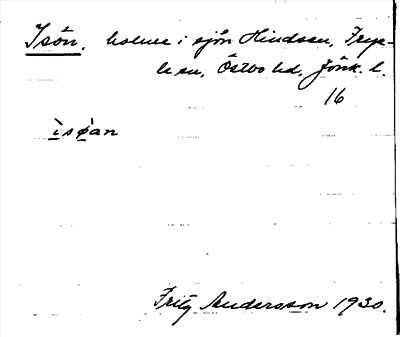 Isön, holme i sjön Hindsen, Frye-
le sn, Östbo hd, Jönk. l.
16
ìsø̀an
Fritz Andersson 1930.